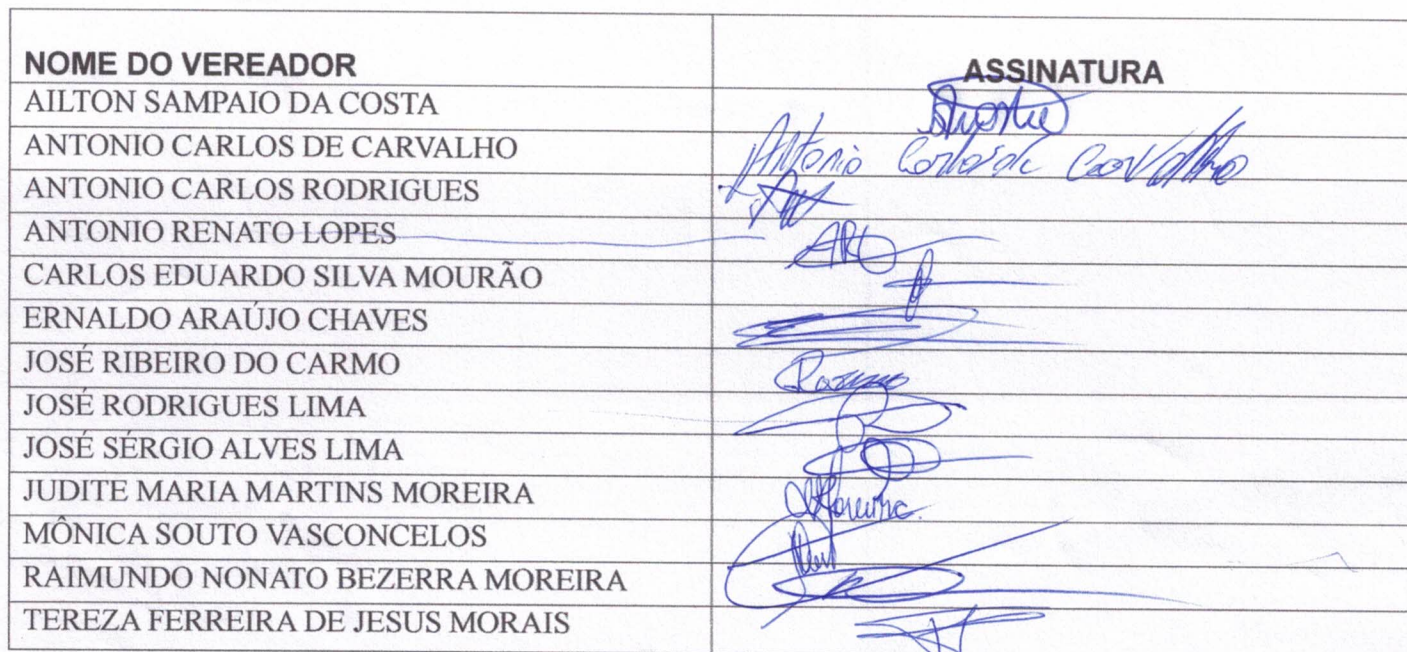 NOME DO VEREADOR ASSINATURA
AILTON SAMPAIO DA COSTA
ANTONIO CARLOS DE CARVALHO Antonio Carlos de Carvalho
ANTONIO CARLOS RODRIGUES
ANTONIO RENATO LOPES ARL
CARLOS EDUARDO SILVA MOURÃO
ERNALDO ARAÚJO CHAVES
JOSÉ RIBEIRO DO CARMO Carmo
JOSÉ RODRIGUES LIMA
JOSÉ SÉRGIO ALVES LIMA
JUDITE MARIA MARTINS MOREIRA Moreira
MÔNICA SOUTO VASCONCELOS
RAIMUNDO NONATO BEZERRA MOREIRA
TEREZA FERREIRA DE JESUS MORAIS